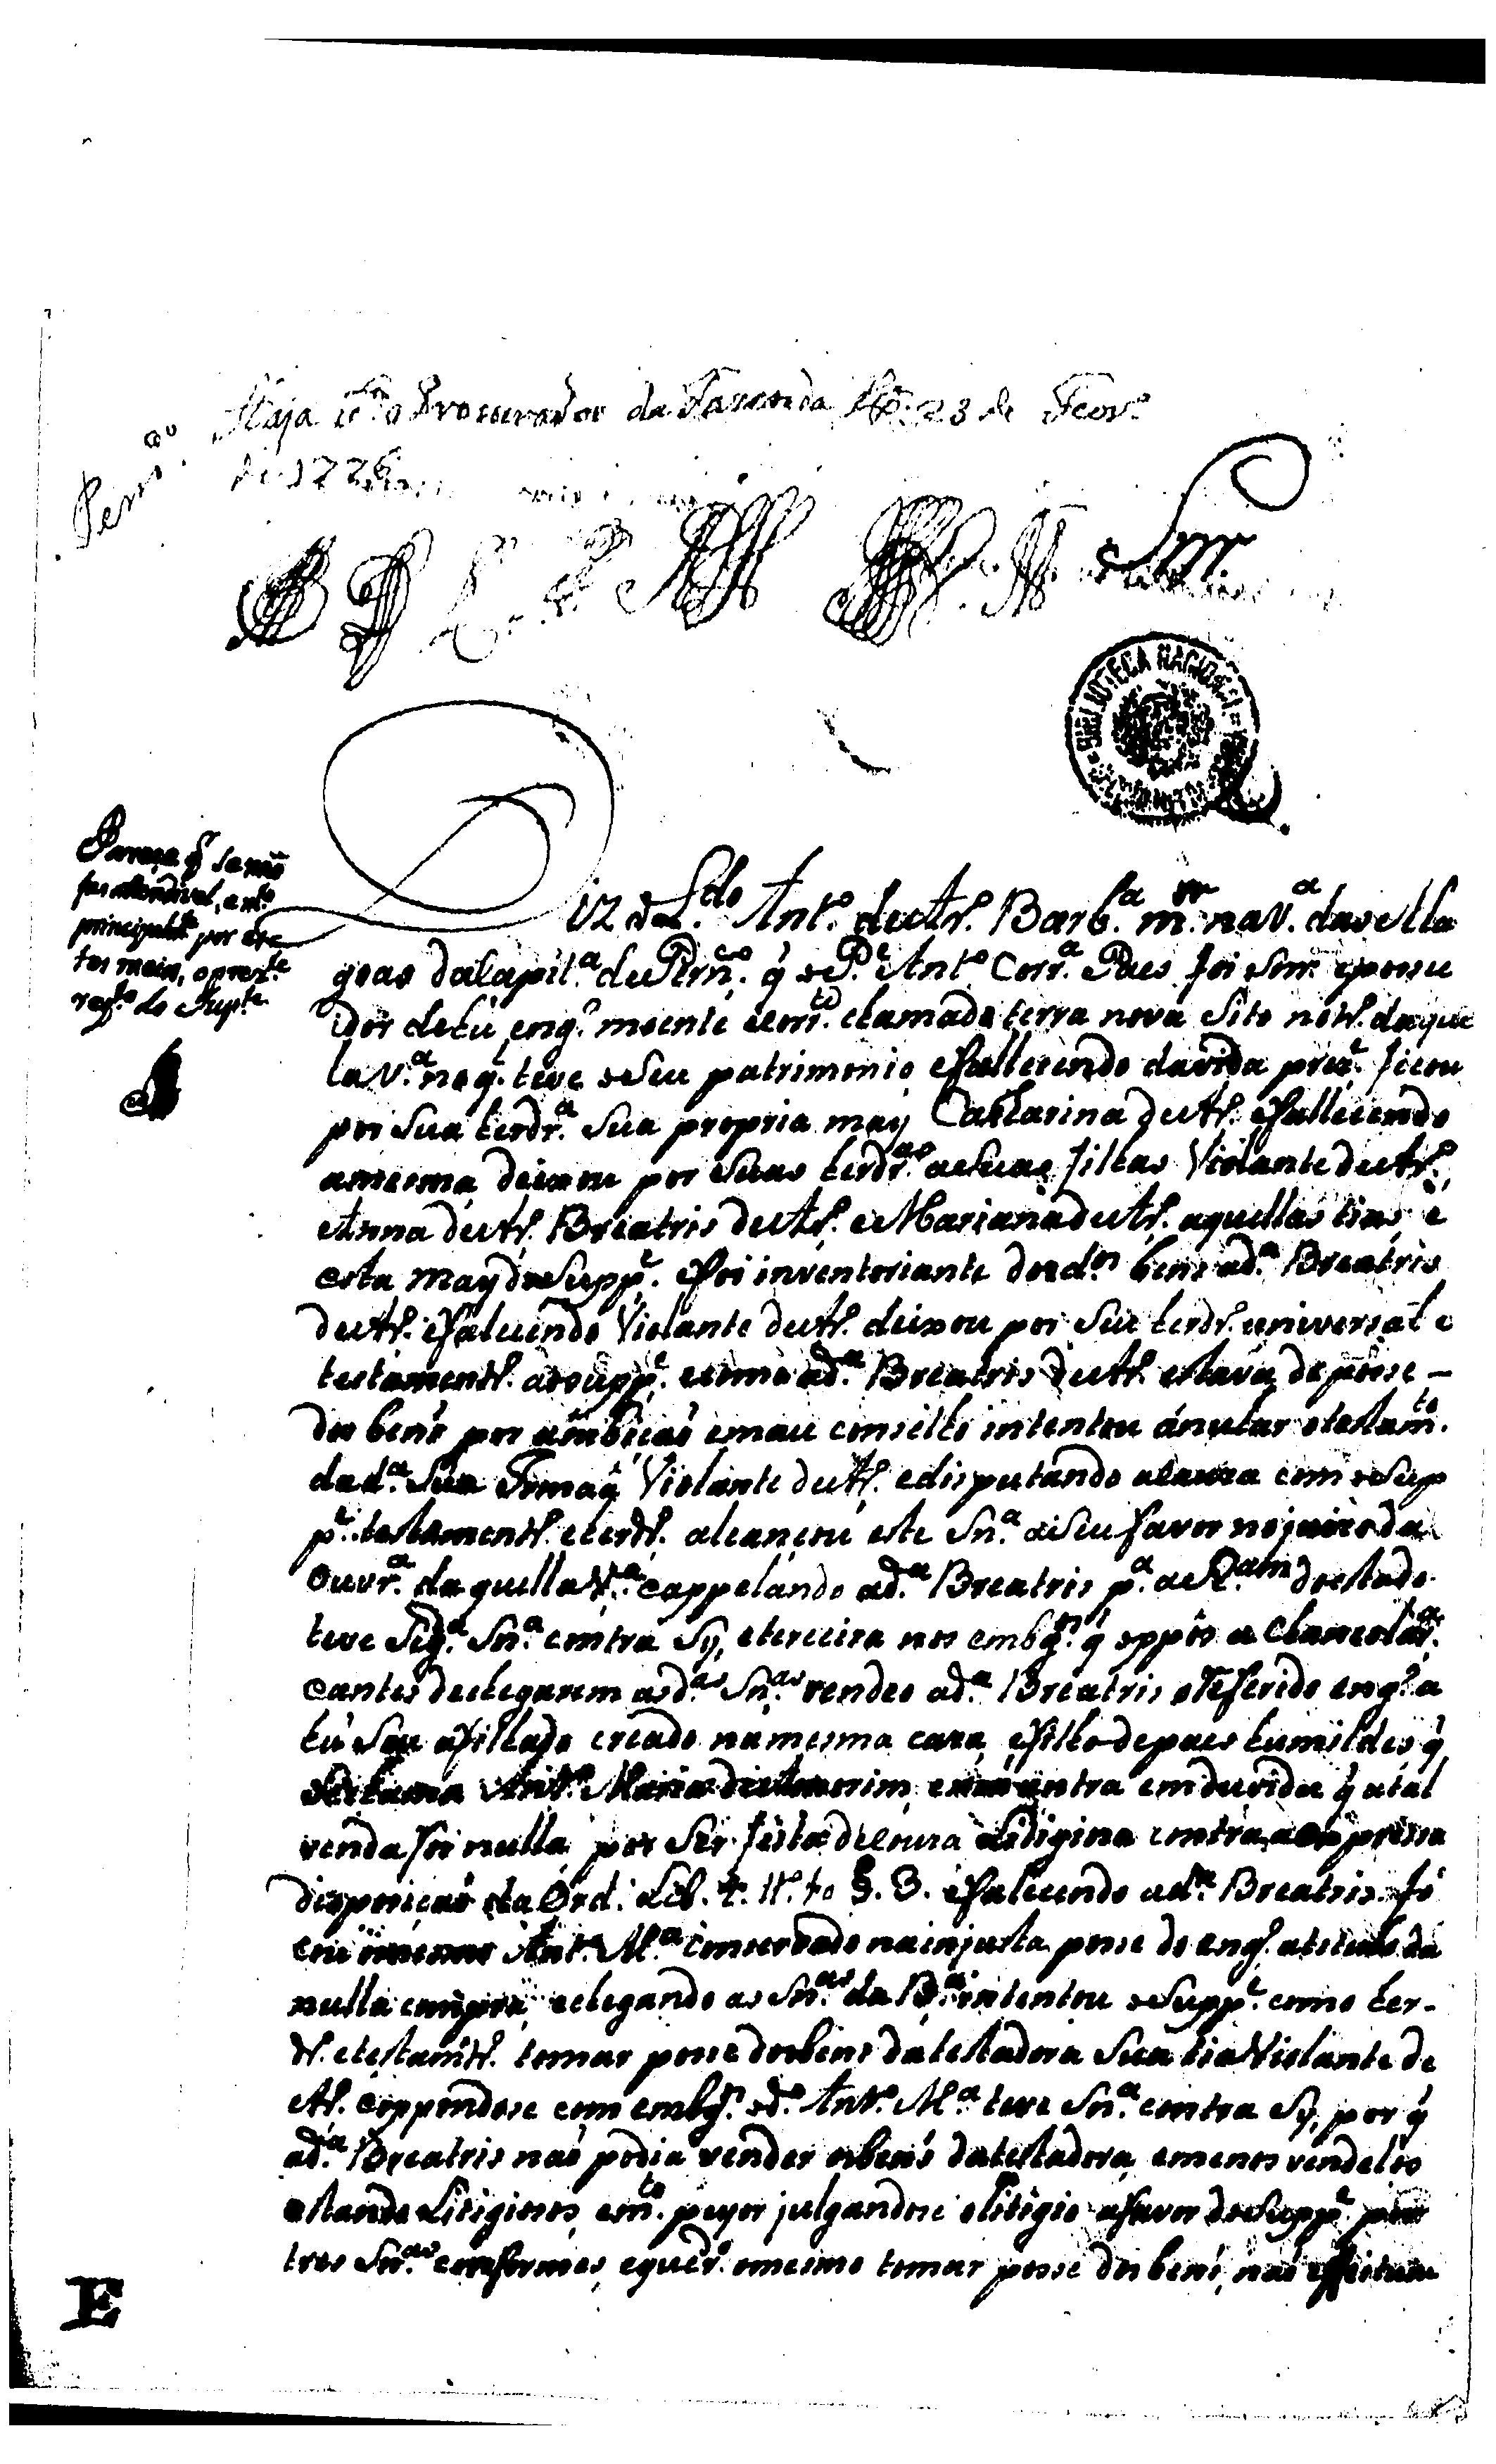 Haja v.ta o Procurador da Fazenda Lx.a 23 de Fevr.o
de 1726
Pern.co
Snr.
BIBLIOTECA NACIONAL
Pareçe q̃ se não
faz atendivel, e m.to
principalm.te por
tos meios, o prez.te
req.to do Sup.te
Diz o L.do Ant.o de Ar.o Barb.a m.or na V.a das Alla
goas da Capit.a de Pern.co q̃ o P.e Ant.o Corr.a Paes foi Snr. e possu
idor de hũ eng.o moente e corr.te chamado terra nova sito no tr.o daque
la V.a no q̃. teve o seu patrimonio e fallecendo da vida prez.e ficou
por sua herdr.a sua propria may Catharina de Ar.o e fallecendo
a mesma deixou por suas herdr.as as suas filhas Violante de Ar.o
e Anna de Ar.o Breatris de Ar.o e Mariana de Ar.o aquellas tias e
esta may do Supp.e e foi inventoriante dos d.os bens a d.a Breatris
de Ar.o e falecendo Violante de Ar.o deixou por seu herdr.o universal e
testamentr.o ao supp.e e como a d.a Breatris de Ar.o estava de posse -
dos bens por ambicaõ e mau conselho intentou ánular o testam.to
da d.a sua Irmaã Violante de Ar.o e disputando a cauza com o Sup
p.e testamentr.o e herdr.o alcançou este Sn.a a seu favor no juizo da
Ouvr.a daquella V.a e appelando a d.a Breatris p.a a R.am do estado
teve seg.a Sn.a contra sy, e terceira nos emb.os q̃ oppôs a Chancelar.a
e antes de chegarem as d.as Sn.as vendeo a d.a Breatris o referido eng.o a
hũ seu afilhado creado na mesma caza, e filho de paes humildes q̃
se chama Ant.o Maria de Amorim, e em duvida q̃ a tal
venda foi nulla por ser feita de couza litigioza contra a expressa
dispoziçaõ da Ord. Lib. 4. tt.o 10 §. 3. e falecendo a d.a Breatris fi
cou Ant.o M.a conservado na injusta posse do eng.o a titulo da
nulla compra, e chegando as Sn.as da B.a intentou o Supp.e como her-
dr.o e testamtr.o tomar posse dos bens da testadora sua tia Violante de
Ar.o e oppondose com emb.os o d.o Ant.o M.a teve Sn.a contra sy, por q̃
a d.a Breatris naõ podia vender os bens da testadora, e menos vendelos
estando litigiozos, e m.to peyor julgandose o litigio a favor do Supp.e por
tres Sn.as conformes, e querd.o o mesmo tomar posse dos bens, naõ
E